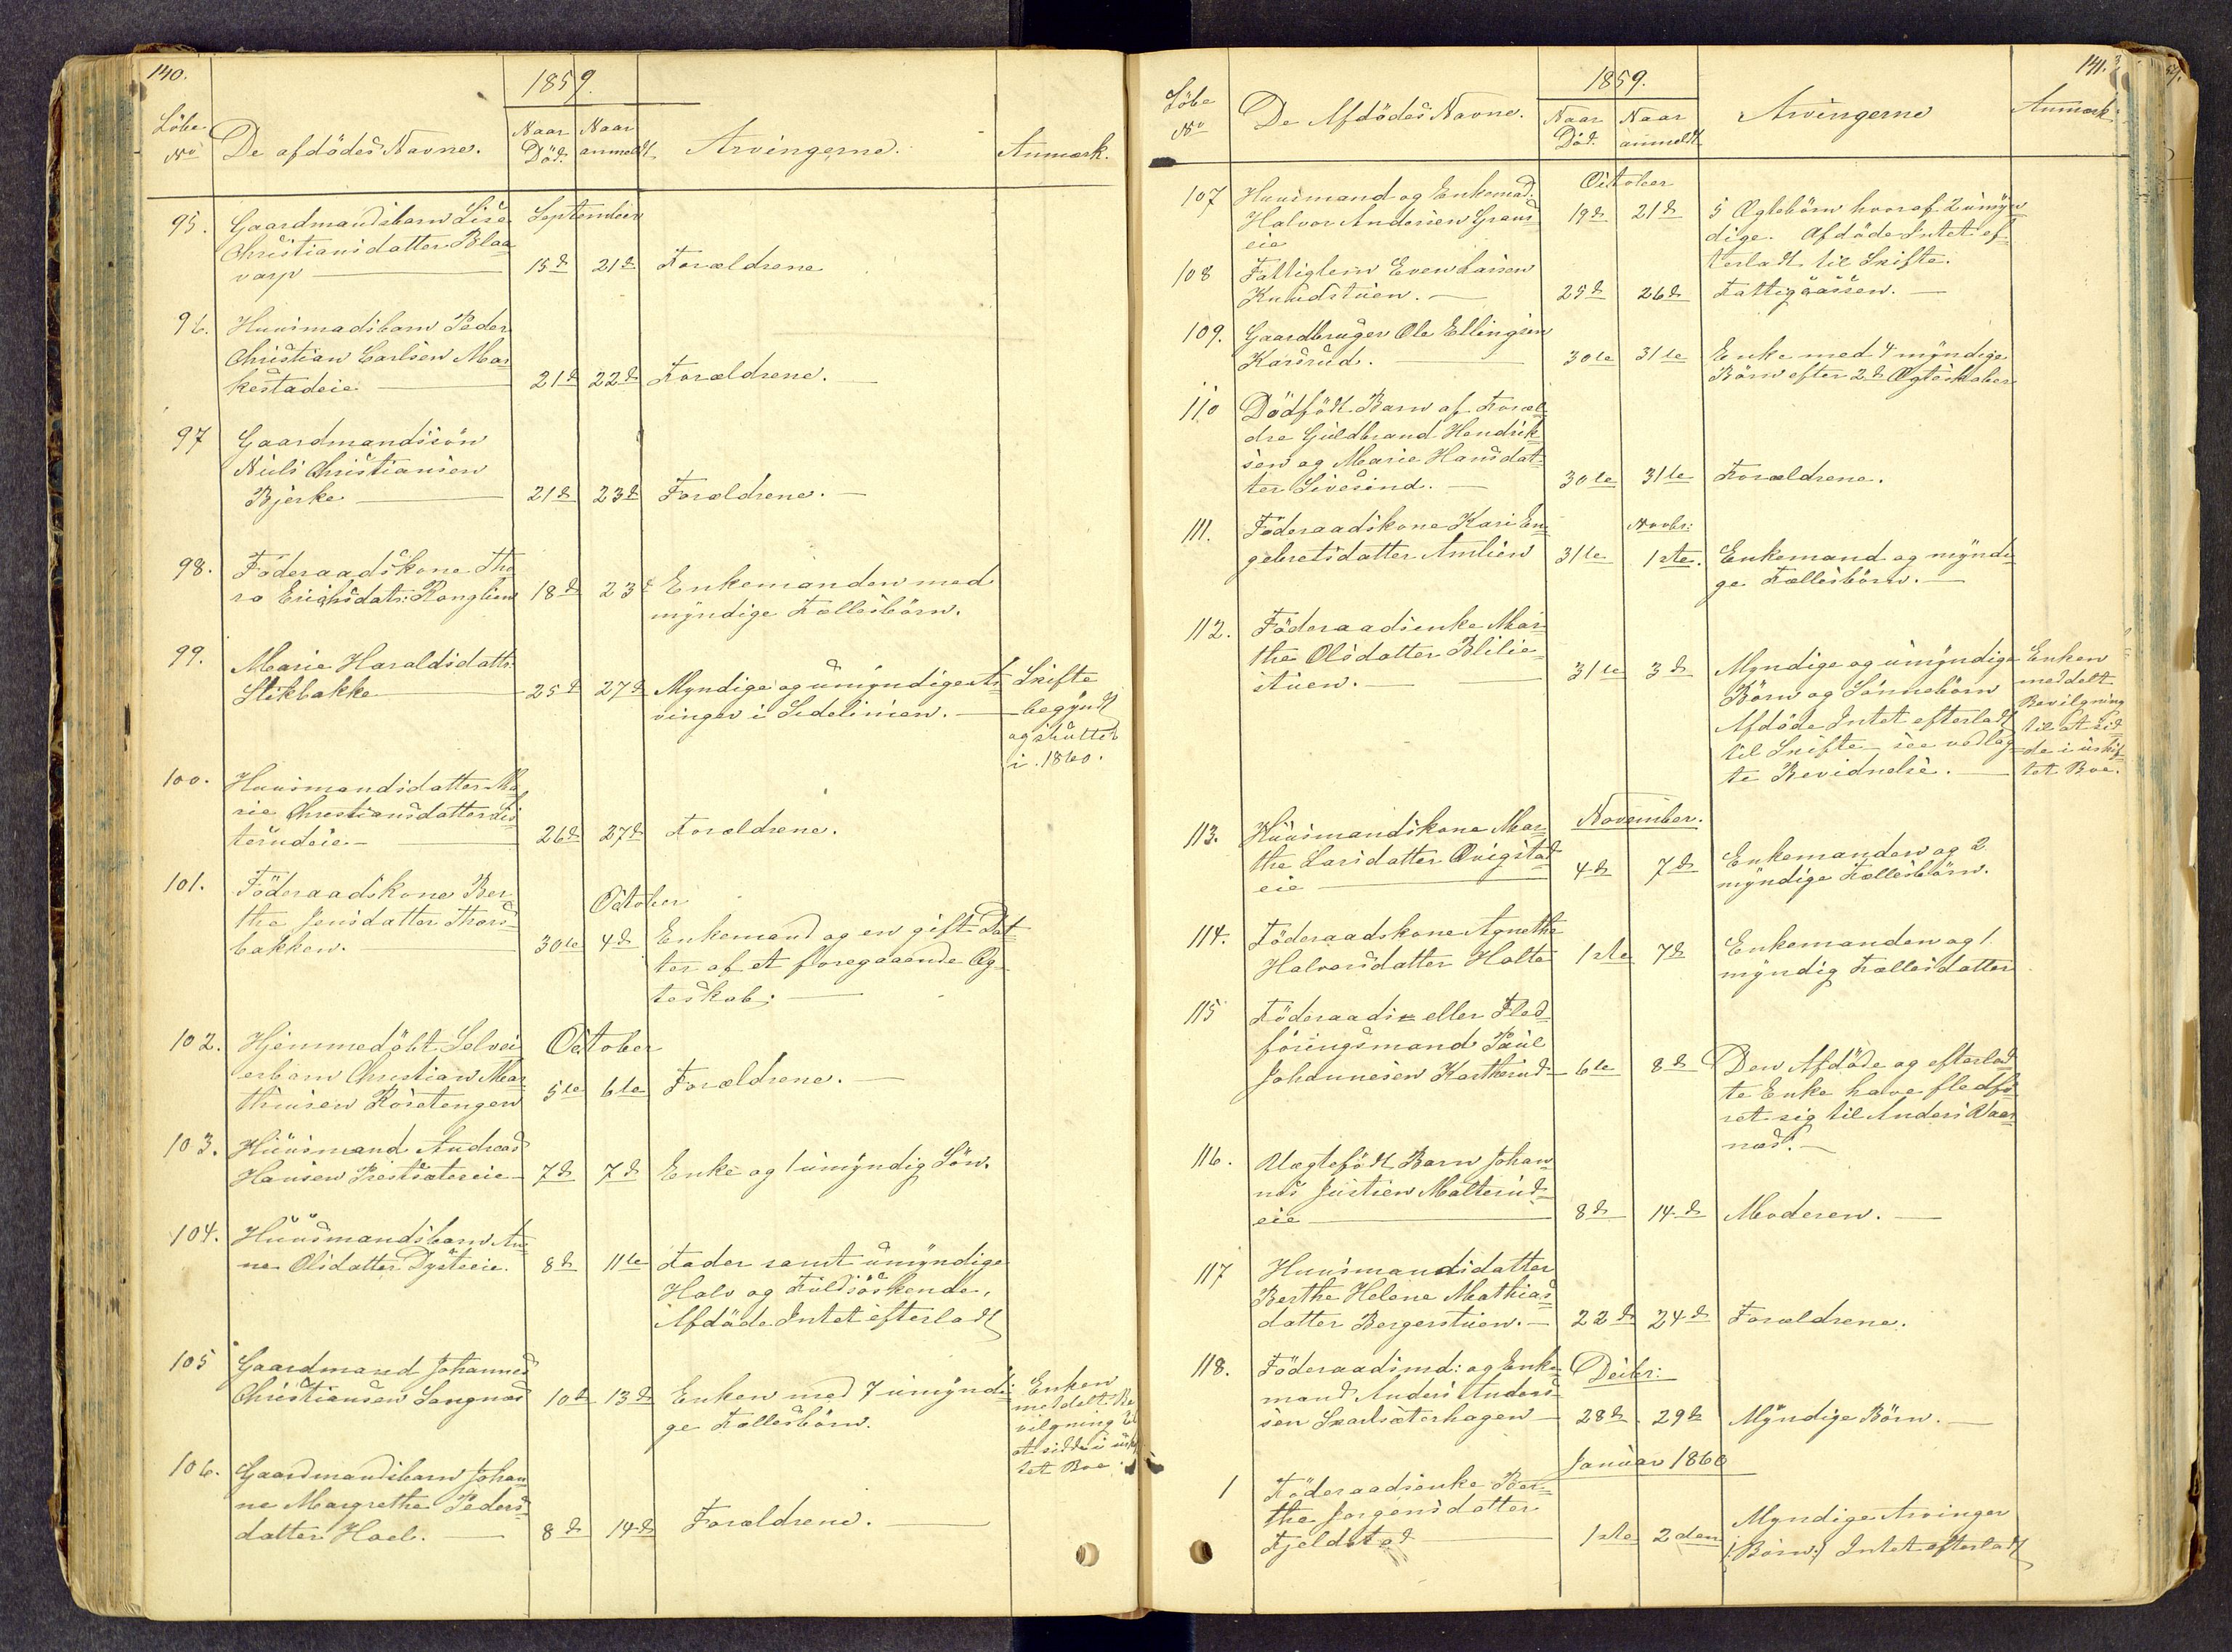 140.
1859.
Löbe No De afdödes Navne. Naar Död. Naar anmeldt Arvingerne. Anmærk.
95. Gaardmandsbarn Lise September
Christiansdatter Blaa=
varp — 15d 21d Forældrene
96. Huusmadsbarn Peder
Christian Carlsen Mar=
kestadeie — 21d 22d Forældrene. —
97 Gaardmandssön
Niels Christiansen
Bjerke — 21d 23d Forældrene. —
98. Föderaadskone Tho=
ra Erichsdatr: Ranglien 18d 23d Enkemanden med
myndige Fællesbörn.
99. Marie Haraldsdattr.
Stikbakke — 25d 27d Myndige og umyndige Ar= Skifte
vinger i Sidelinien. — begyndt
og sluttet
i 1860.
100. Huusmandsdatter Ma=
rie Christiansdatter Lis=
terudeie. — 26d 27d Forældrene.
101. Föderaadskone Ber=
the Jensdatter Thors= October
bakken. — 30te 4d Enkemand og en gift Dat=
ter af et foregaaende Æg=
teskab; —
102. Hjemmedöbt Selvei= October
erbarn Christian Mar=
thinsen Rosetengen 5te 6te Forældrene. —
103. Huusmand Andreas
Hansen Prestsætereie — 7d 7d Enke og 1 umyndig Sön.
104. Huusmandsbarn An=
ne Olsdatter Dysteeie. 8d 11te Fader samt umyndige
Halv og Fuldsöskende.
Afdöde Intet efterladt
105 Gaardmand Johannes
Christiansen Sangnæs 10d 13d Enken med 7 umyndi= Enken
ge Fællesbörn. meddelt Be=
vilgning til
at sidde i uskif=
tet Boe.
106. Gaardmandsbarn Johan=
ne Margrethe Peders=
datter Hoel. — 8d 14d Forældrene. —
141.
1859.
Löbe No De Afdödes Navne. Naar Död. Naar anmeldt Arvingerne Anmærk.
107 Huusmand og Enkemad. October
Halvor Andersen Graus= 19d 21d 5 Ægtebörn hvoraf 2 umyn=
eie dige. Afdöde Intet ef=
terladt til Skifte.
108 Fattiglem Even Larsen
Knudstuen. — 25d 26d Fattigcassen. —
109. Gaardbruger Ole Ellingsen
Karsrud. — 30te 31te Enke med 4 myndige
Börn efter 2d Ægteskaber
110 Dödfödt Barn af Foræl=
dre Guldbrand Hendrik=
sen og Marie Hansdat=
ter Sivesind. — 30te 31te Forældrene.
111. Föderaadskone Kari En= Novbr:
gebretsdatter Amlien 31te 1ste. Enkemand og myndi=
ge Fællesbörn. —
112. Föderaadsenke Mar=
the Olsdatter Blilie=
stuen. — 31te 3d Myndige og umyndige Enken
Börn og Sönnebörn meddelt
Afdöde Intet efterladt Bevilgning
til Skifte see vedlag= til at sid=
te Bevidnelse. — de i uskif=
tet Boe.
113. Huusmandskone Mar= November.
the Larsdatter Qvigstad=
eie — 4d 7d Enkemanden og 2
myndige Fællesbörn.
114. Föderaadskone Agnethe
Halvorsdatter Holte 1ste 7d Enkemanden og 1
myndig Fællesdatter
115 Föderaads= eller Fled=
föringsmand Paul
Johannesen Kartherud — 6te 8d Den Afdöde og efterlad=
te Enke have fledfö=
ret sig til Anders Vaar=
næs. —
116. Uægtefödt Barn Johan=
nes Justsen Malterud=
eie — 8d 14d Moderen. —
117 Huusmandsdatter
Berthe Helene Mathias=
datter Bergerstuen. — 22d 24d Forældrene.
118. Föderaadsmd: og Enke= Decbr:
mand Anders Anders=
sen Skarlsæterhagen — 28d 29d Myndige Börn. —
Januar 1860
1 Föderaadsenke Ber=
the Jorgensdatter
Fjeldstad — 1ste 2den Myndige Arvinger
/: Börn:/ Intet efterladt